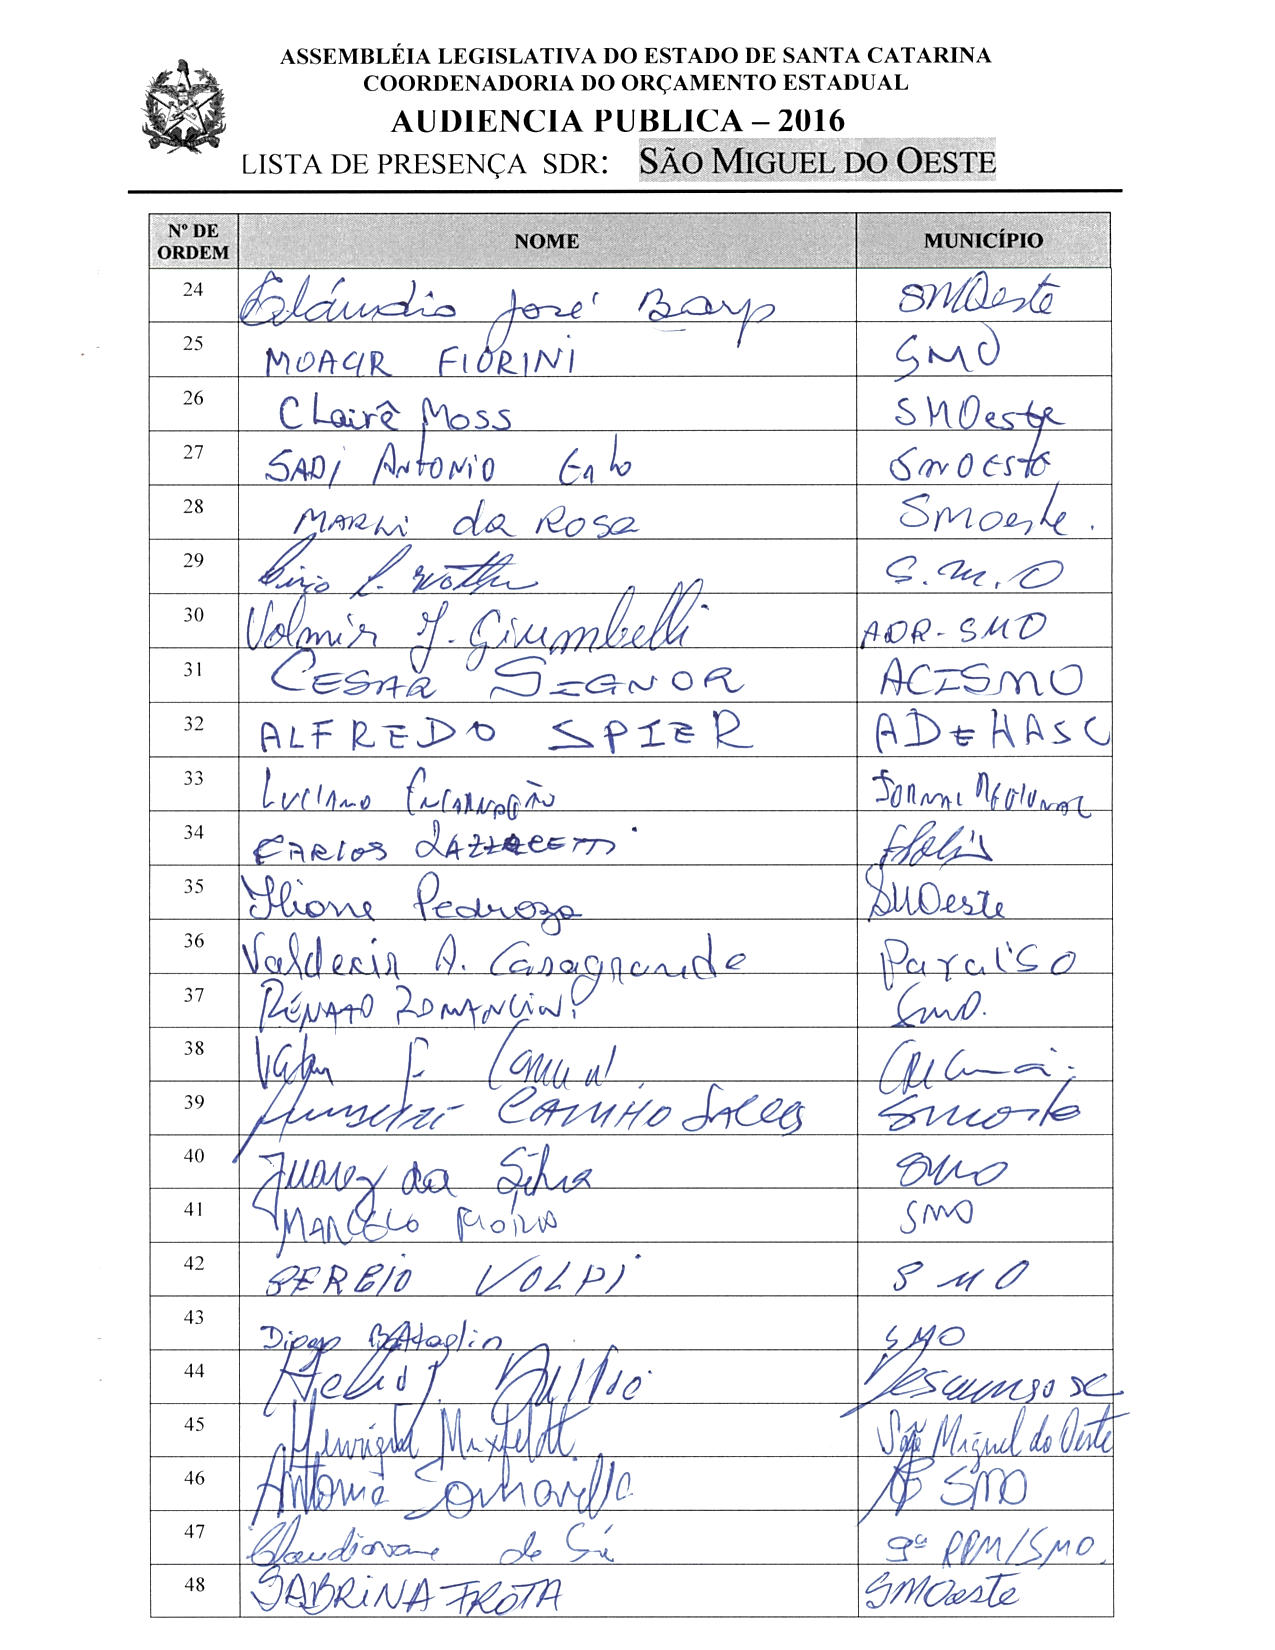 ASSEMBLÉIA LEGISLATIVA DO ESTADO DE SANTA CATARINA
COORDENADORIA DO ORÇAMENTO ESTADUAL
AUDIENCIA PUBLICA – 2016
LISTA DE PRESENÇA SDR: SÃO MIGUEL DO OESTE
Nº DE ORDEM NOME MUNICÍPIO
24 Cláudio José Barp SMOeste
25 MOACIR FIORINI SMO
26 Clairê Moss SMOeste
27 SADI ANTONIO SMOESTE
28 MARLI da ROSA SMOeste.
29 S.M.O
30 Volmir J. Giumbelli ADR-SMO
31 CESAR SIGNOR ACISMO
32 ALFREDO SPIER ADEHASC
33 LUCIANO ENCARNAÇÃO JORNAL REGIONAL
34 CARLOS
35 Ilione Pedrozo SMOeste
36 Valdecir A. Casagrande Paraíso
37 RENATO ROMANCINI SMO.
38
39 SMOeste
40 Juarez da Silva SMO
41 MARCELO SMO
42 SERGIO VOLPI SMO
43 Diogo BAtaglin SMO
44 Descanso SC
45 Henrique Maxfeldt. São Miguel do Oeste
46 Antonio SMO
47 Claudiovane de Sá 9ª RPM/SMO.
48 SABRINA FROTA SMOeste